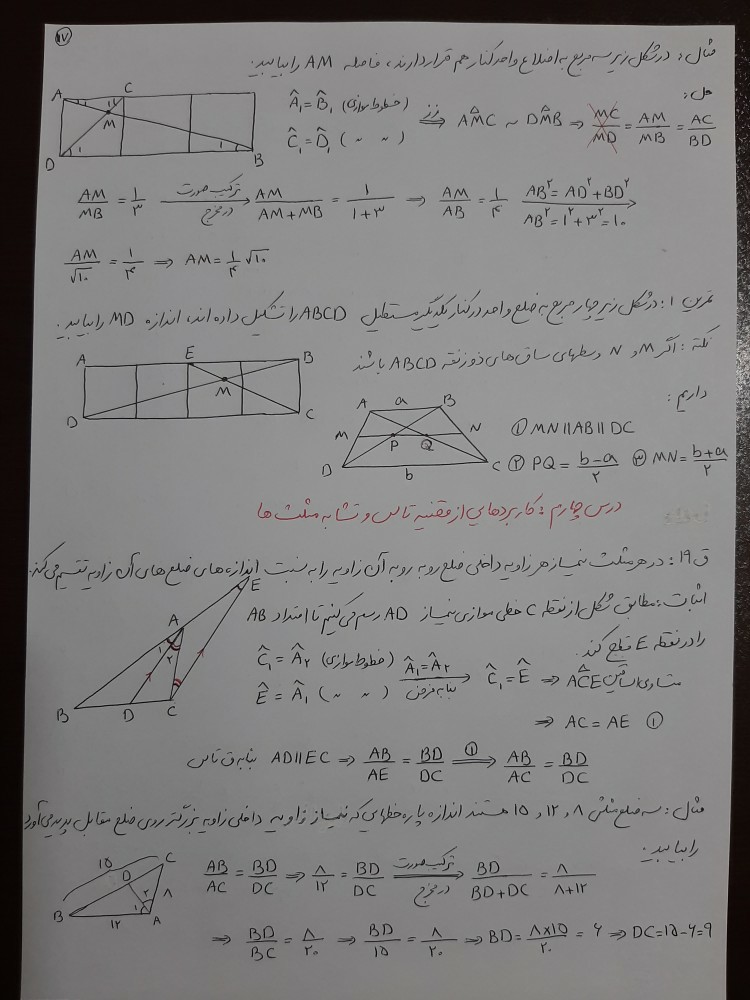 ۱۷
مثال: در شکل زیر سه مربع به اضلاع واحد کنار هم قرار دارند، فاصله AM را بیابید.
حل:
A C M D B ۱ ۱ ۱ ۱
Â₁ = B̂₁ (خطوط موازی)
Ĉ₁ = D̂₁ ( 〃 〃 ) ⇒ زز AMC ~ DMB ⇒ MC/MD = AM/MB = AC/BD
AM/MB = ۱/۳ ترکیب صورت در مخرج → AM/(AM+MB) = ۱/(۱+۳) ⇒ AM/AB = ۱/۴ AB² = AD² + BD² AB² = ۱² + ۳² = ۱۰ →
AM/√۱۰ = ۱/۴ ⇒ AM = ۱/۴ √۱۰
تمرین ۱: در شکل زیر چهار مربع به ضلع واحد در کنار یکدیگر مستطیل ABCD را تشکیل داده اند، اندازه MD را بیابید.
A E B M D C
نکته: اگر M و N وسطهای ساق های ذوزنقه ABCD باشند
داریم:
A a B M N P Q D b C
① MN || AB || DC
② PQ = (b-a)/۲ ③ MN = (b+a)/۲
درس چهارم: کاربردهایی از قضیه تالس و تشابه مثلث ها
ق ۱۹: در هر مثلث نیمساز هر زاویه داخلی ضلع روبه روبه آن زاویه را به نسبت اندازه های ضلع های آن زاویه تقسیم می کند.
اثبات: مطابق شکل از نقطه C خطی موازی نیمساز AD رسم می کنیم تا امتداد AB
را در نقطه E قطع کند.
E A ۱ ۲ B D C ۱
Ĉ₁ = Â₂ (خطوط موازی)
Ê = Â₁ ( 〃 〃 ) Â₁ = Â₂ بنابه فرض → Ĉ₁ = Ê ⇒ ACE متساوی الساقین
⇒ AC = AE ①
بنابه ق تالس AD || EC ⇒ AB/AE = BD/DC ① ⇒ AB/AC = BD/DC
مثال: سه ضلع مثلثی ۸ و ۱۲ و ۱۵ هستند اندازه پاره خطهایی که نیمساز زاویه داخلی زاویه بزرگتر روی ضلع مقابل پدید می آورد
را بیابید:
۱۵ C D ۸ ۲ ۱ B ۱۲ A
AB/AC = BD/DC ⇒ ۸/۱۲ = BD/DC ترکیب صورت در مخرج ⇒ BD/(BD+DC) = ۸/(۸+۱۲)
⇒ BD/BC = ۸/۲۰ ⇒ BD/۱۵ = ۸/۲۰ ⇒ BD = ۸×۱۵/۲۰ = ۶ ⇒ DC = ۱۵-۶ = ۹